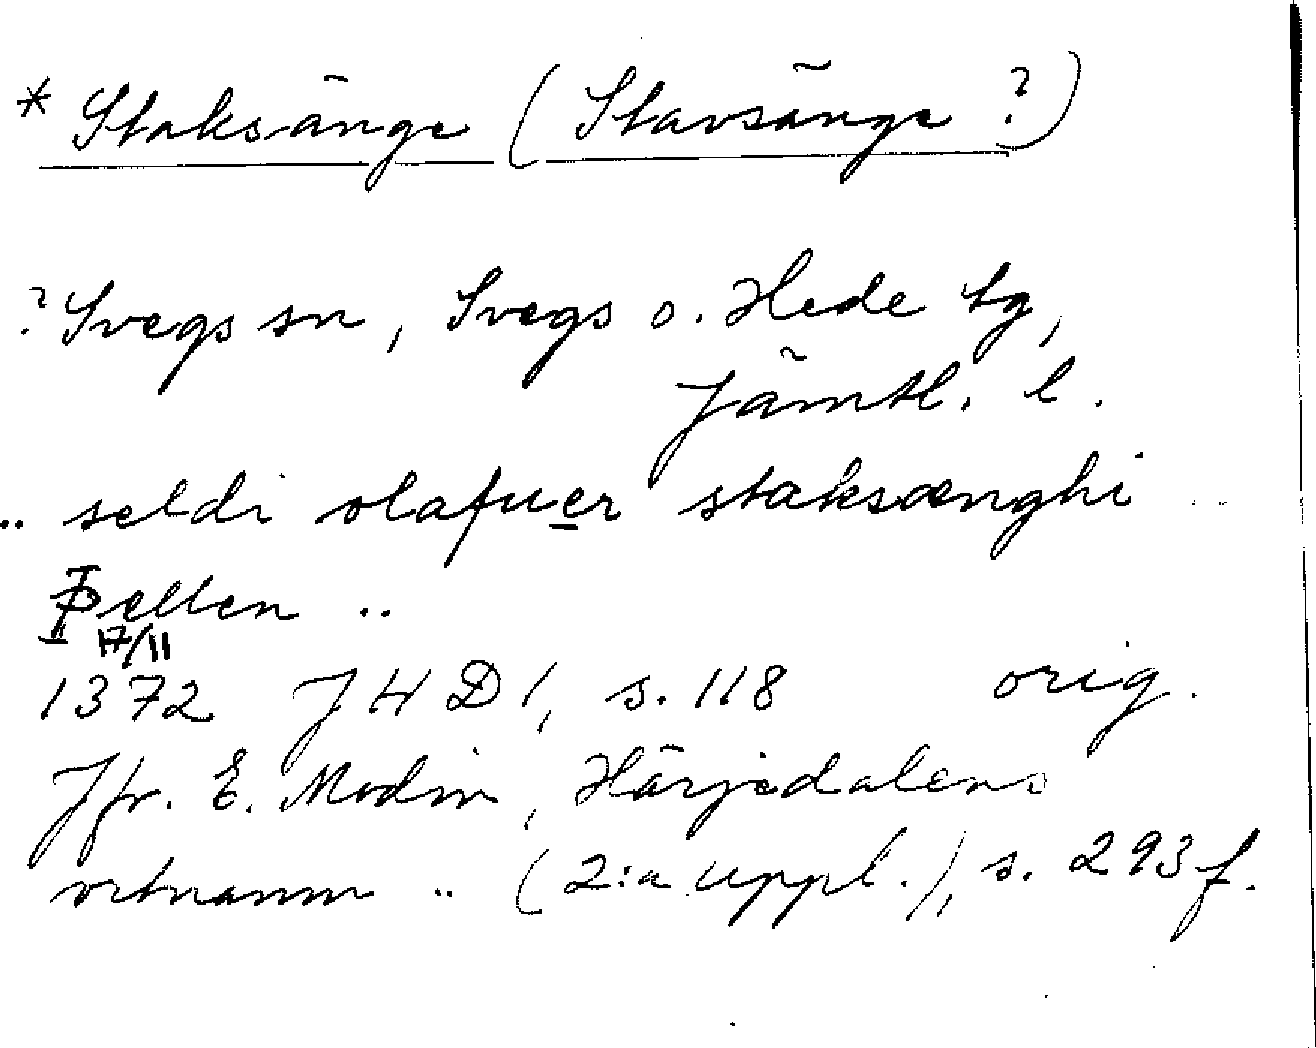 * Staksänge (Stavsänge ?)
? Svegs sn, Svegs o. Hede tg,
Jämtl. l.
.. seldi olafuer staksænghi ..
Þellen ..
17/11
1372 JHD 1, s. 118 orig.
Jfr. E. Modin, Härjedalens
ortnamn .. (2:a uppl.), s. 293 f.